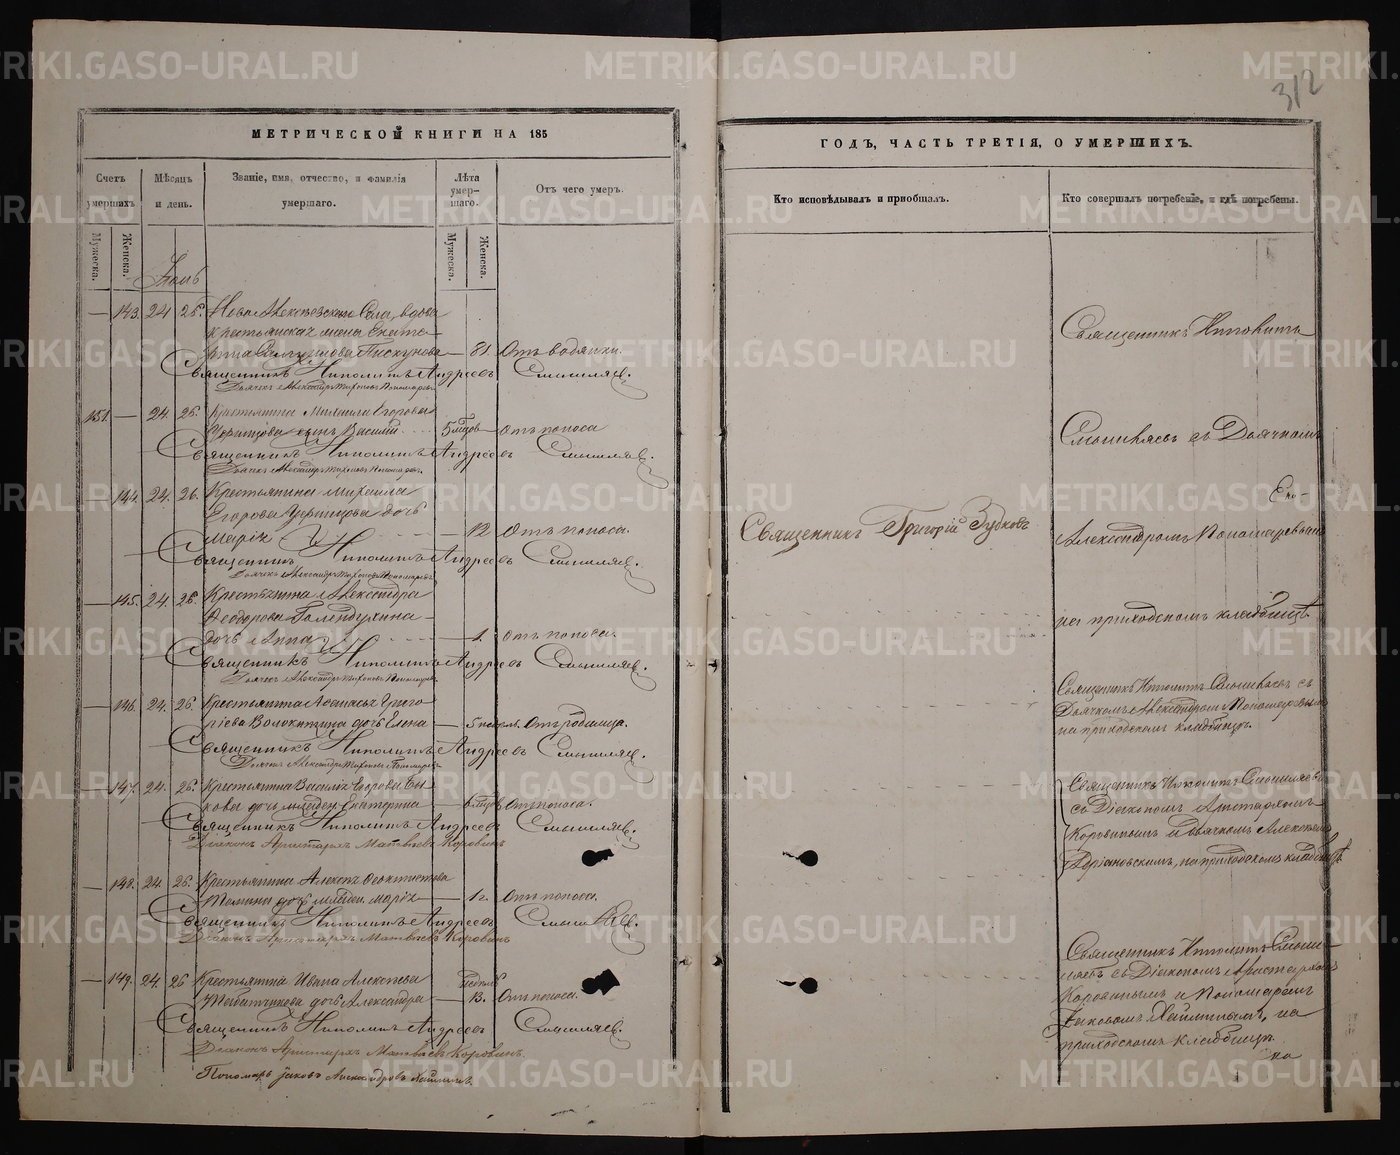 METRIKI.GASO-URAL.RU
312
МЕТРИЧЕСКОЙ КНИГИ НА 185
ГОДЪ, ЧАСТЬ ТРЕТІЯ, О УМЕРШИХЪ.
Счетъ умершихъ
Мѣсяцъ и день.
Званіе, имя, отчество, и фамилія умершаго.
Лѣта умер-шаго.
Отъ чего умеръ.
Кто исповѣдывалъ и пріобщалъ.
Кто совершалъ погребеніе, и гдѣ погребены.
Мужеска.
Женска.
Мужеска.
Женска.
— 143. 24 26.
крестьянская жена Екате-
81. Отъ водянки.
Священникъ Ипполитъ Андреевъ Смышляевъ.
Дьячекъ Александръ Тихоновъ Пономаревъ.
151. — 24. 26. Крестьянина Михаила Егорова
сынъ Василій 5 мѣсяцов — отъ поноса
Священникъ Ипполитъ Андреевъ Смышляевъ.
Дьячекъ Александръ Тихоновъ Пономаревъ.
— 144. 24. 26. Крестьянина Михаила
Егорова дочь
Марія — 12 Отъ поноса.
Священникъ Ипполитъ Андреевъ Смышляевъ.
Дьячекъ Александръ Тихоновъ Пономаревъ
— 145. 24. 26. Крестьянина Александра
Ѳеодорова Голендухина
дочь Анна — 1. отъ поноса.
Священникъ Ипполитъ Андреевъ Смышляевъ.
Дьячекъ Александръ Тихоновъ Пономаревъ
— 146. 24. 26. Крестьянина Аѳанасья Григо-
рьева Волокитина дочь Елена — 5 недѣль. Отъ родимца.
Священникъ Ипполитъ Андреевъ Смышляевъ.
Дьячекъ Александръ Тихоновъ Пономаревъ
— 147. 24. 26. Крестьянина Василія Егорова Бы-
кова дочь младен. Екатерина — 6 мѣсяц. Отъ поноса.
Священникъ Ипполитъ Андреевъ Смышляевъ.
Діаконъ Аристархъ Матвѣевъ Коровинъ
— 148. 24. 26. Крестьянина Алексѣя Ѳеоктистова
дочь младен. Марія — 1 г. Отъ поноса.
Священникъ Ипполитъ Андреевъ Смышляевъ.
Діаконъ Аристархъ Матвѣевъ Коровинъ
— 149. 24. 26 Крестьянина Ивана Алексѣева
дочь Александра — 13. Отъ поноса.
Священникъ Ипполитъ Андреевъ Смышляевъ.
Діаконъ Аристархъ Матвѣевъ Коровинъ.
Пономарь Іаковъ Александровъ
Священникъ Григорій Зубковъ
Священникъ Ипполитъ
Смышляевъ съ Дьячкомъ
Александромъ Пономаревымъ
на приходскомъ кладбищѣ
Священникъ Ипполитъ Смышляевъ съ
Дьячкомъ Александромъ Пономаревымъ
на приходскомъ кладбищѣ.
Священникъ Ипполитъ Смышляевъ
съ Діакономъ Аристархомъ
Коровинымъ и дьячкомъ Алексѣемъ
на приходскомъ кладбищѣ.
Священникъ Ипполитъ Смыш-
ляевъ съ Діакономъ Аристархомъ
Коровинымъ и Пономаремъ
Іаковомъ на
приходскомъ кладбищѣ.
на